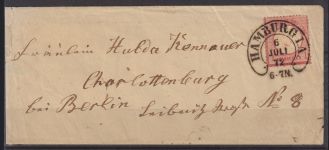 Fräulein Hulda Kennauer
HAMBURG I.A.
6
JULI
72
6-7N.
Charlottenburg
bei Berlin Leibnitz Straße No 8